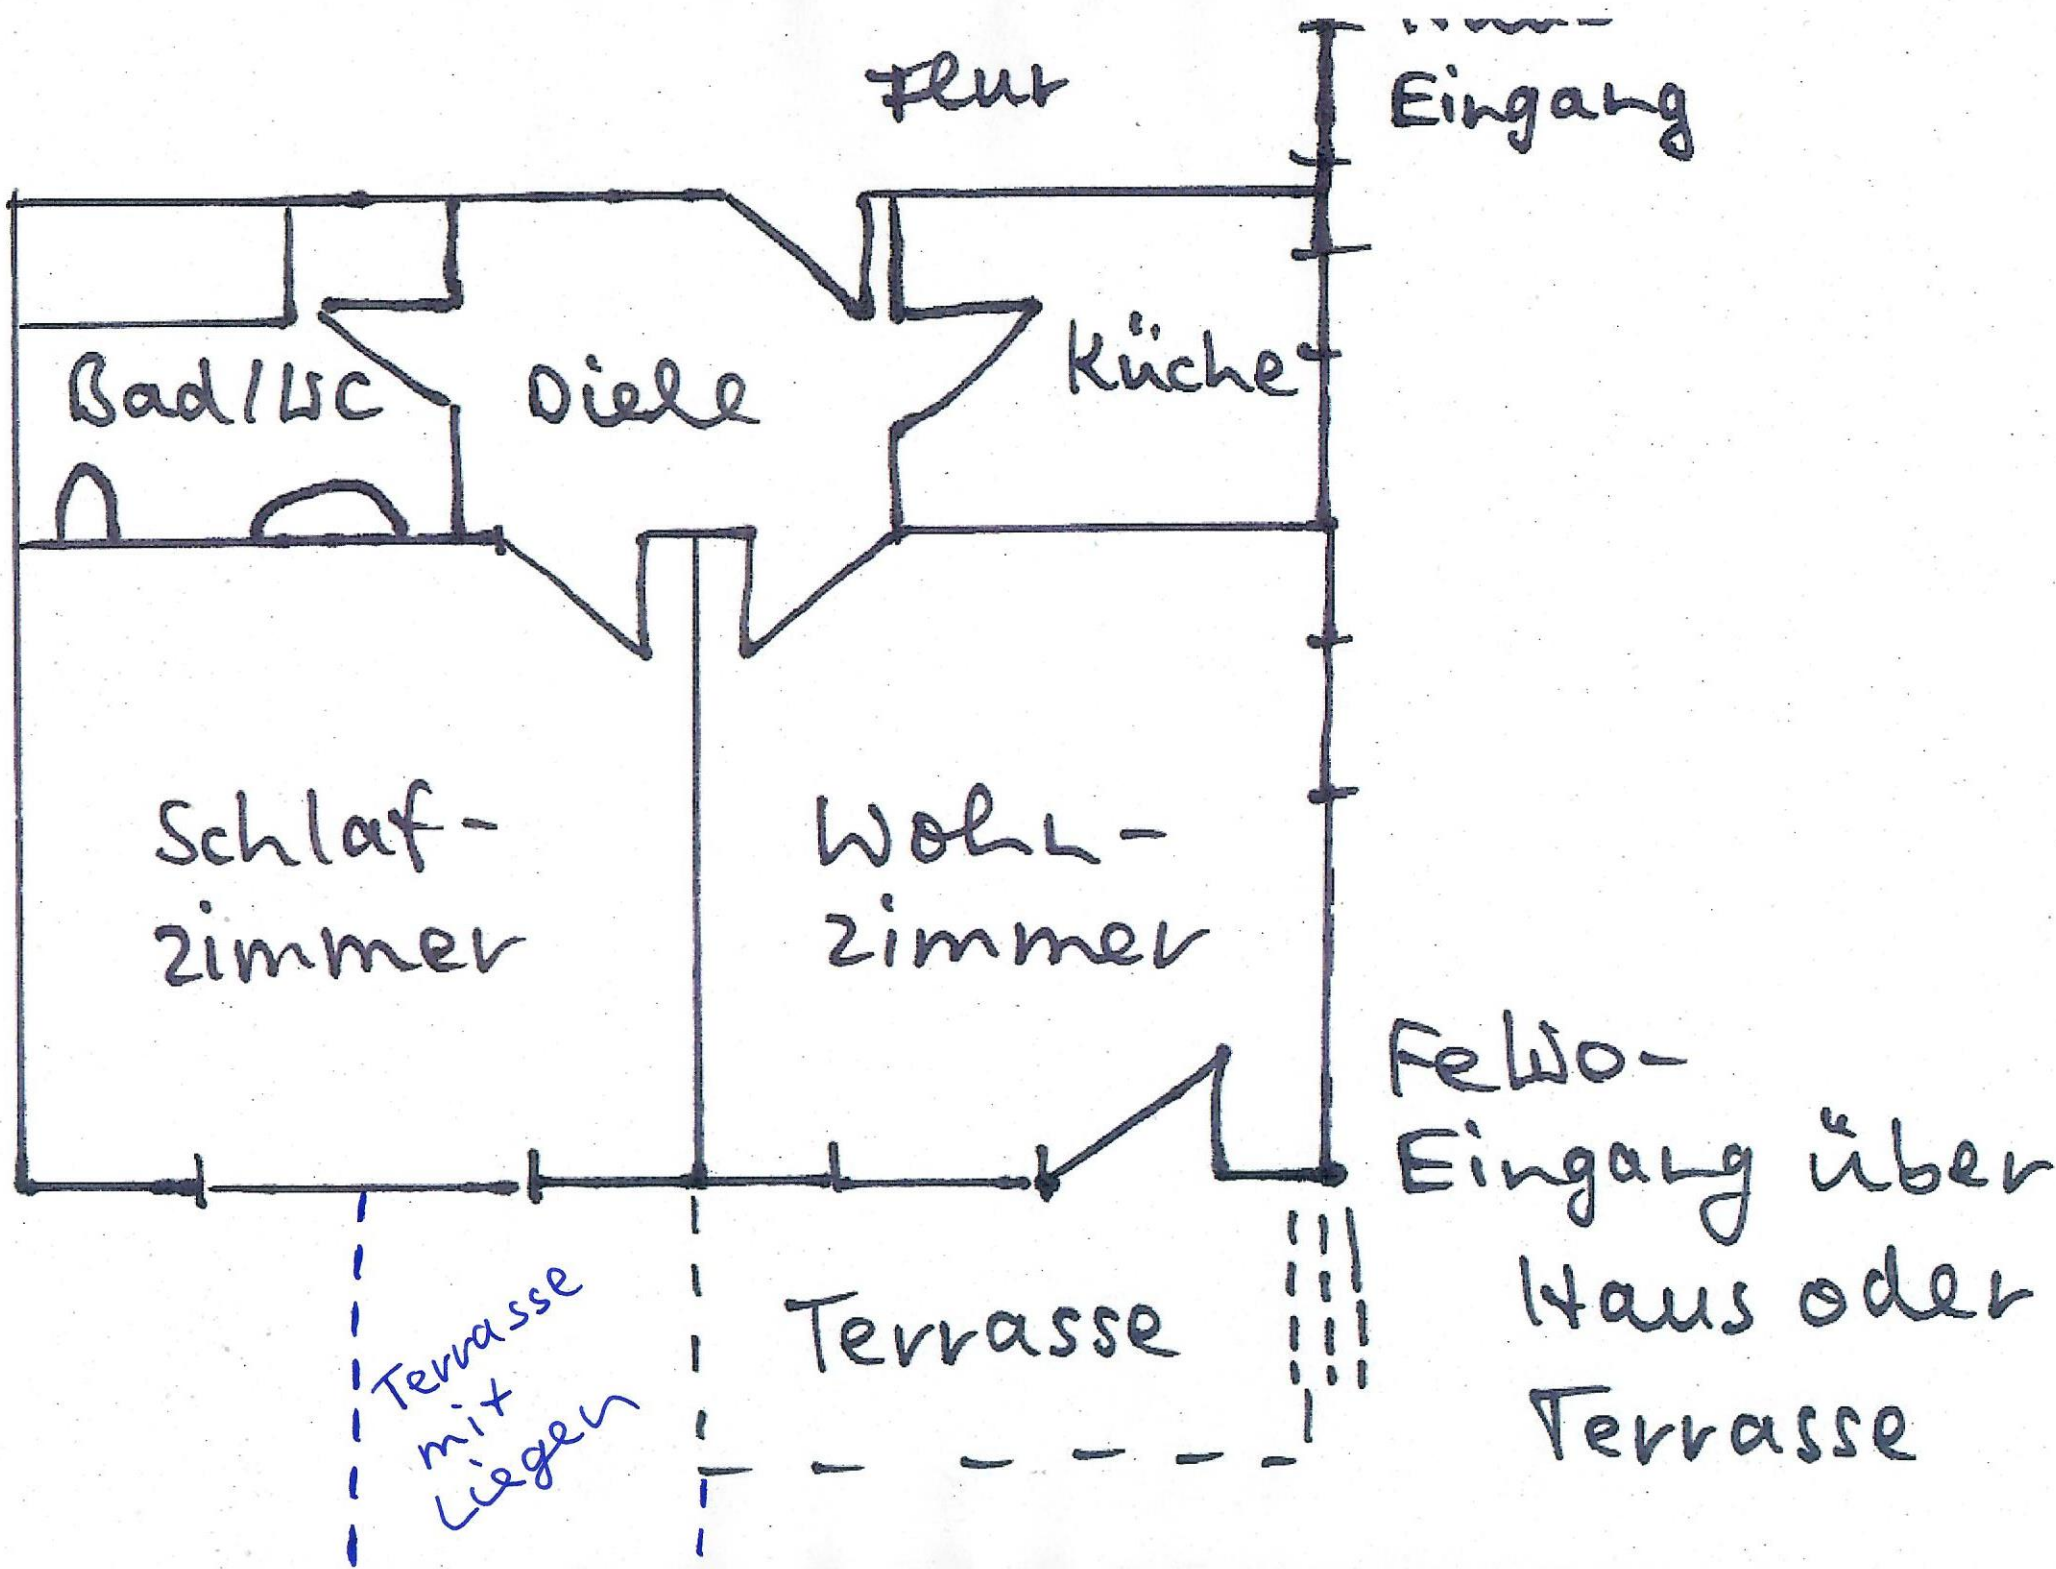 Flur
Eingang
Bad/WC
Diele
Küche
Schlaf-
zimmer
Wohn-
zimmer
FeWo-
Eingang über
Haus oder
Terrasse
Terrasse
Terrasse
mit
Liegen